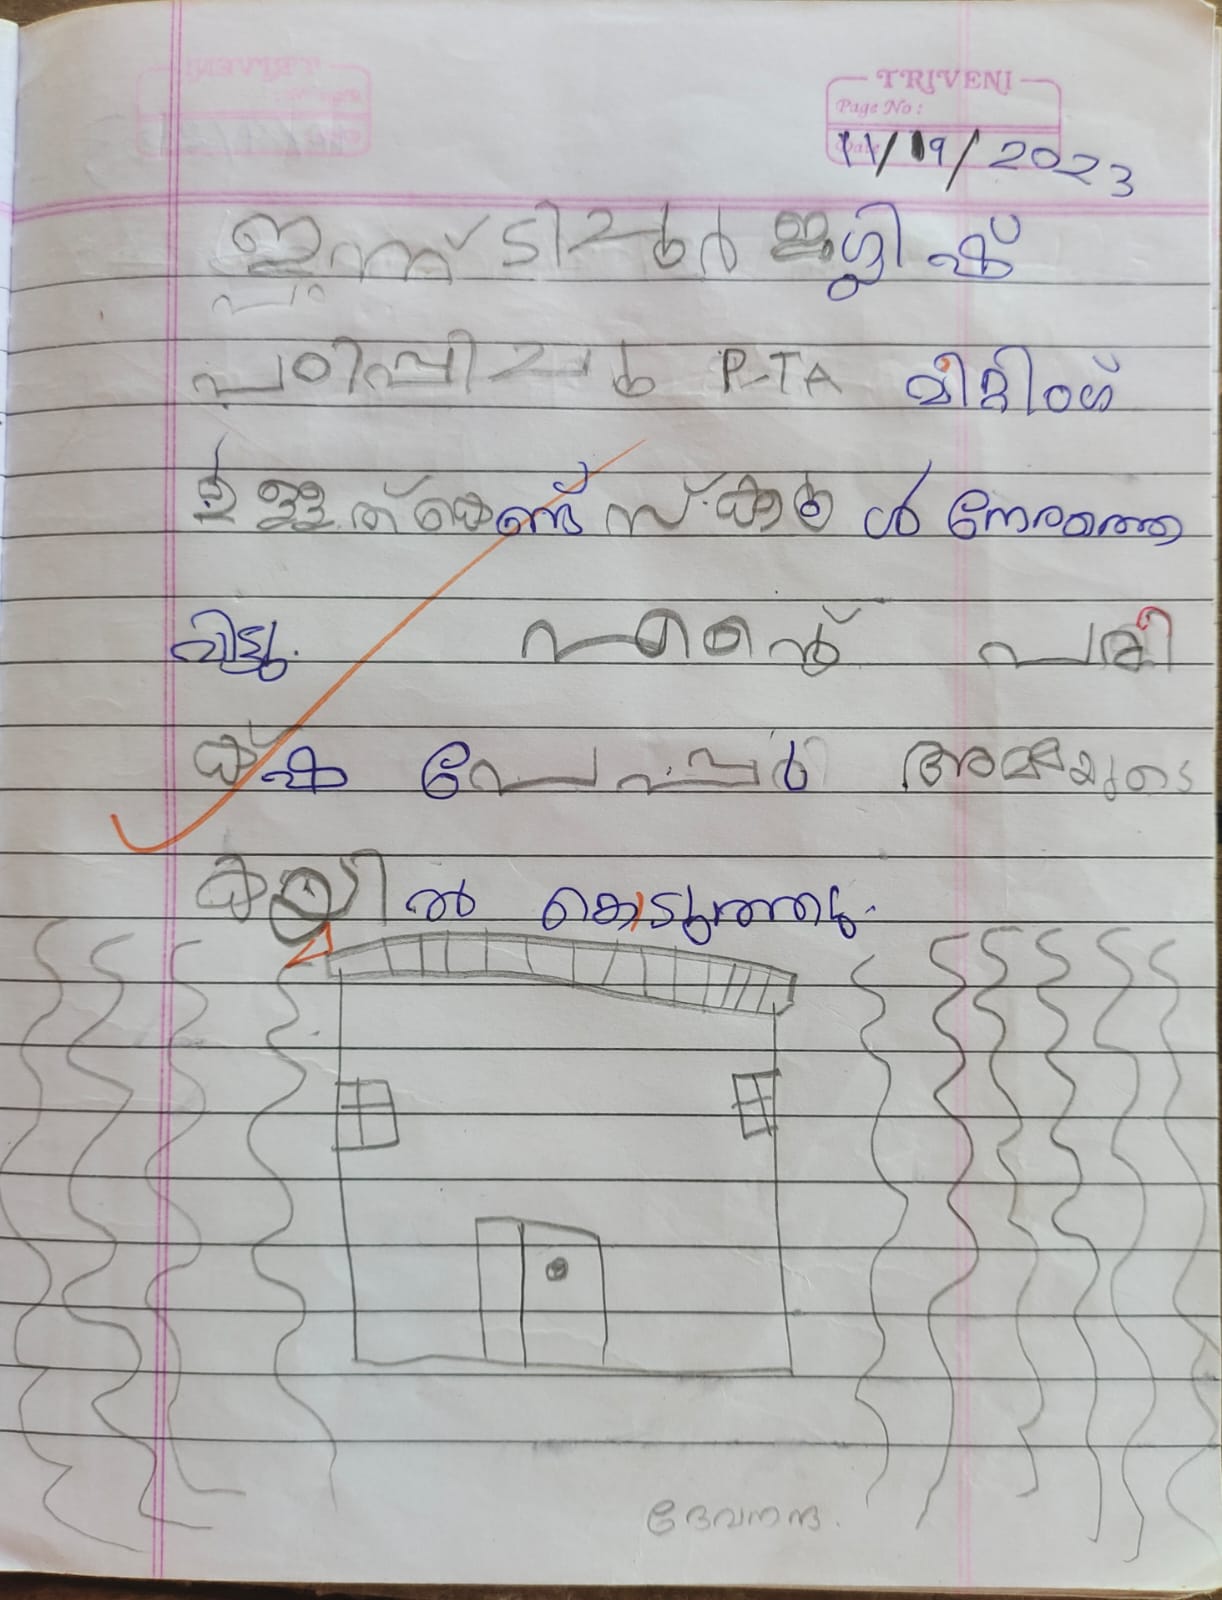 TRIVENI
Page No:
Date 11/19/2023
ഇന്ന് ടിച്ചർ ഇഗ്ലീഷ്
പഠിപ്പിച്ചു PTA മീറ്റിംഗ്
ഉള്ളത്കൊണ്ട് സ്കൂൾ നേരത്തെ
വിട്ടു. എൻ്റെ പരീ
ക്ഷ പേപ്പർ അമ്മയുടെ
കയ്യിൽ കൊടുത്തു.
ദേവനന്ദ.